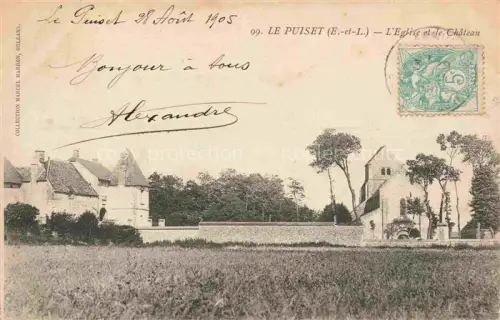 Le Puiset 28 Août 1905
99. LE PUISET (E.-et-L.) — L'Eglise et le Château
Bonjour à tous
Alexandre
COLLECTION MARCEL MARRON, ORLEANS.
5